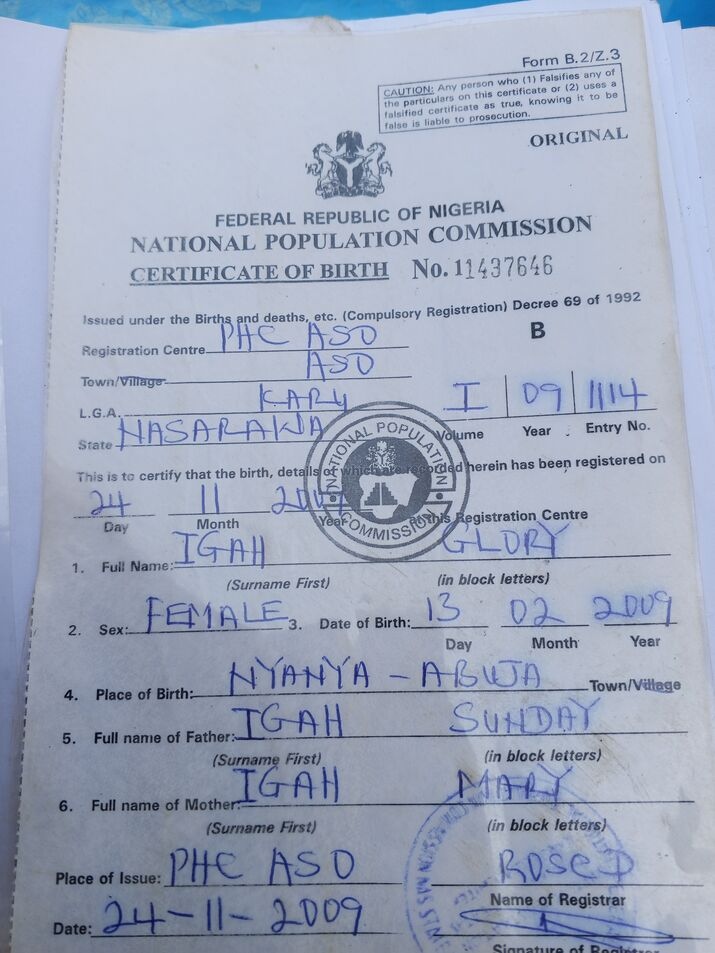 Form B.2/Z.3
CAUTION: Any person who (1) Falsifies any of
the particulars on this certificate or (2) uses a
falsified certificate as true, knowing it to be
false is liable to prosecution.
ORIGINAL
FEDERAL REPUBLIC OF NIGERIA
NATIONAL POPULATION COMMISSION
CERTIFICATE OF BIRTH No. 11437646
Issued under the Births and deaths, etc. (Compulsory Registration) Decree 69 of 1992
Registration Centre PHC ASO B
Town/Village ASO
L.G.A. KARU I 09 1114
State NASARAWA Volume Year Entry No.
NATIONAL POPULATION COMMISSION
This is to certify that the birth, details of which are recorded herein has been registered on
24 11 2009
Day Month Year at this Registration Centre
1. Full Name: IGAH GLORY
(Surname First) (in block letters)
2. Sex: FEMALE 3. Date of Birth: 13 02 2009
Day Month Year
4. Place of Birth: NYANYA - ABUJA Town/Village
5. Full name of Father: IGAH SUNDAY
(Surname First) (in block letters)
6. Full name of Mother: IGAH MARY
(Surname First) (in block letters)
Place of Issue: PHC ASO ROSE D
Name of Registrar
Date: 24-11-2009
Signature of Registrar